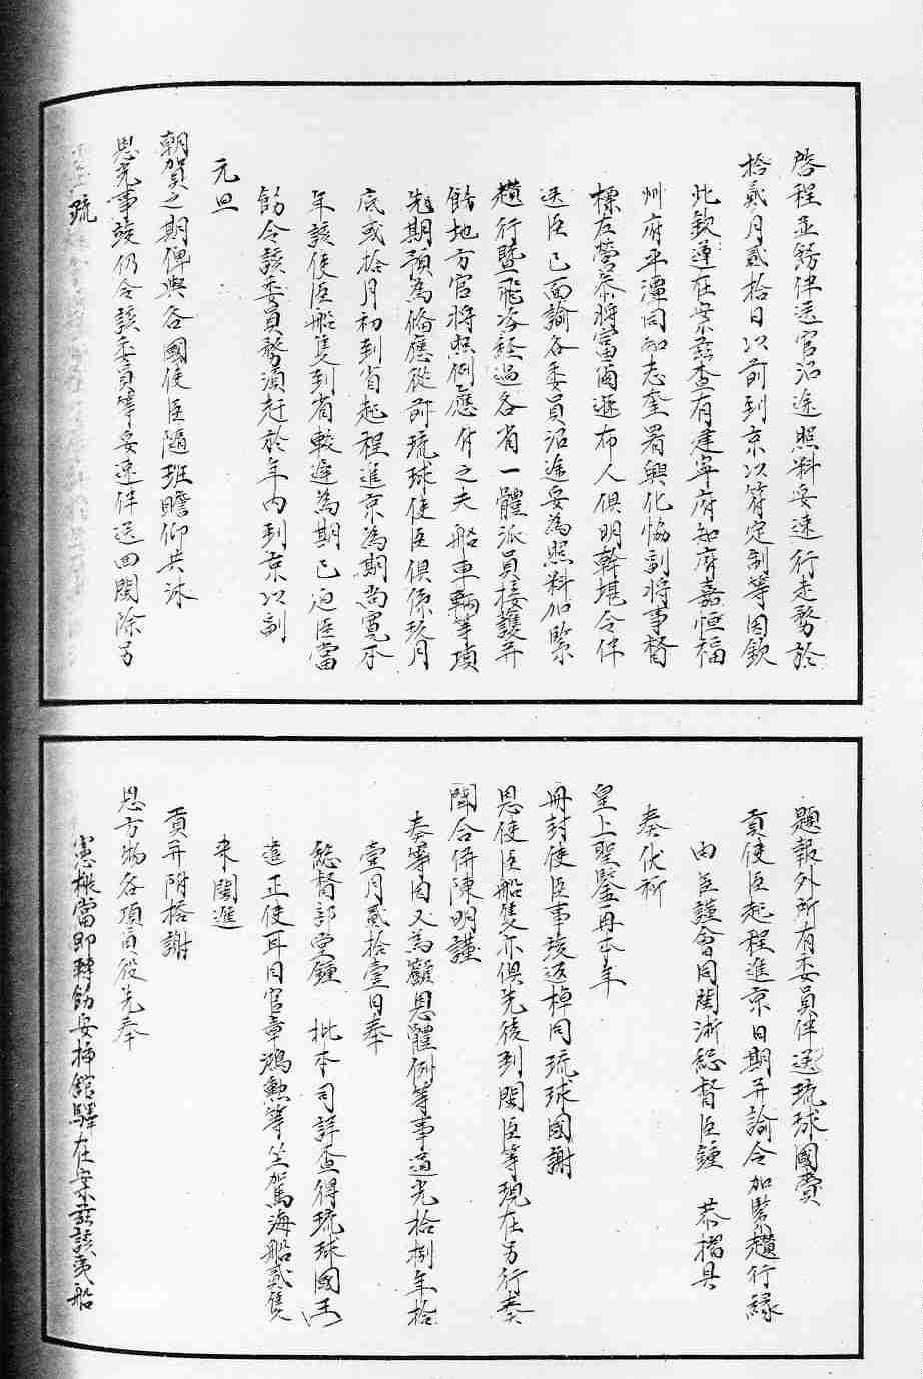 啓程並飭伴送官沿途照料妥速行走務於
拾貳月貳拾日以前到京以符定制等因欽
此欽遵在案茲查有建寧府知府嘉恒福
州府平潭同知志奎署興化協副將事督
標左營叅將富爾遜布人俱明幹堪令伴
送臣已面諭各委員沿途妥為照料加緊
趲行暨飛咨經過各省一體派員接護并
飭地方官將照例應付之夫船車輛等項
先期預為俻應從前琉球使臣俱係玖月
底或拾月初到省起程進京為期尚寬本
年該使臣船隻到省較遲為期已迫臣當
飭令該委員務須赶於年內到京以副
元旦
朝賀之期俾與各國使臣隨班瞻仰共沐
恩光事竣仍令該委員等妥速伴送回閩除另
疏
題報外所有委員伴送琉球國賫
貢使臣起程進京日期并諭令加緊趲行緣
由臣謹會同閩浙總督臣鍾 恭摺具
奏伏祈
皇上聖鑒再本年
冊封使臣事竣返棹同琉球國謝
恩使臣船隻亦俱先後到閩臣等現在另行奏
聞合併陳明謹
奏等因又為瀝恩體例等事道光拾捌年拾
壹月貳拾壹日奉
總督部堂鍾 批本司詳查得琉球國王
遣正使耳目官章鴻勲等坐駕海船貳隻
来閩進
貢并附搭謝
恩方物各項員役先奉
憲檄當即轉飭安揷館驛在案茲該夷船